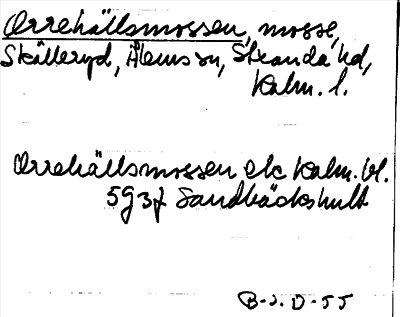 Orrehällsmossen, mosse,
Skälleryd, Ålems sn, Stranda hd,
Kalm. l.
Orrehällsmossen ek Kalm. bl.
5g3f Sandbäckshult
B-J. D-55